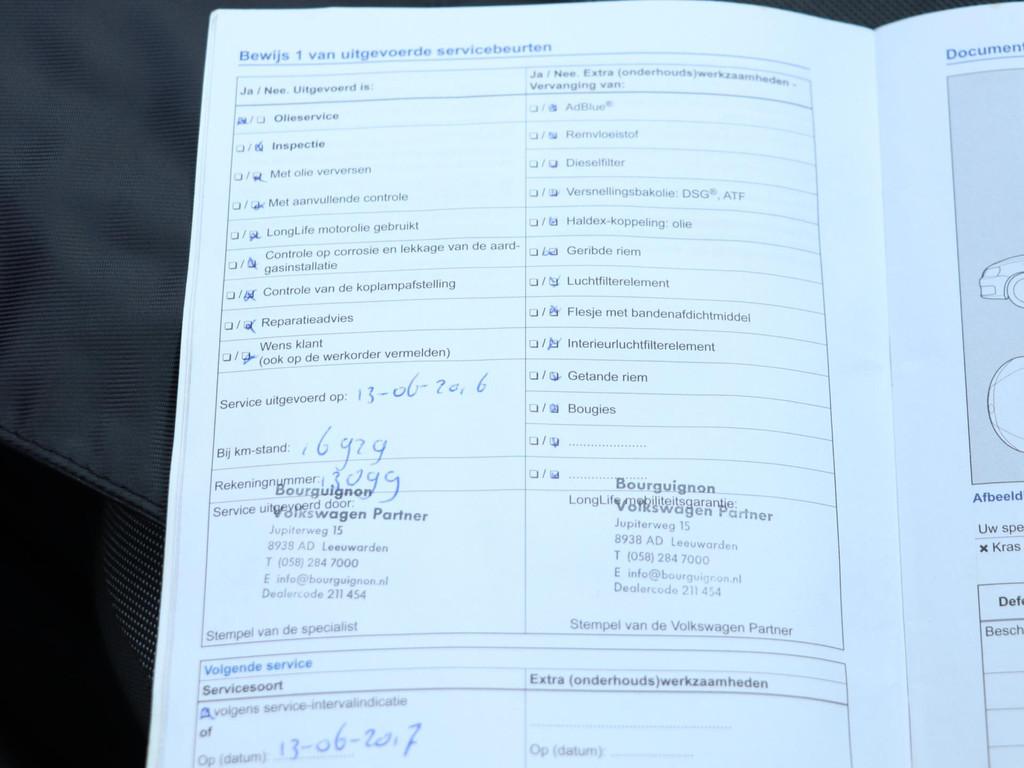 Bewijs 1 van uitgevoerde servicebeurten
Ja / Nee. Uitgevoerd is:
Olieservice
Inspectie
Met olie verversen
Met aanvullende controle
LongLife motorolie gebruikt
Controle op corrosie en lekkage van de aard-
gasinstallatie
Controle van de koplampafstelling
Reparatieadvies
Wens klant
(ook op de werkorder vermelden)
Service uitgevoerd op: 13-06-2016
Bij km-stand: 16929
Rekeningnummer: 13099
Service uitgevoerd door:
Bourguignon
Volkswagen Partner
Jupiterweg 15
8938 AD Leeuwarden
T (058) 284 7000
E info@bourguignon.nl
Dealercode 211 454
Stempel van de specialist
Ja / Nee. Extra (onderhouds)werkzaamheden -
Vervanging van:
AdBlue®
Remvloeistof
Dieselfilter
Versnellingsbakolie: DSG®, ATF
Haldex-koppeling: olie
Geribde riem
Luchtfilterelement
Flesje met bandenafdichtmiddel
Interieurluchtfilterelement
Getande riem
Bougies
LongLife mobiliteitsgarantie:
Bourguignon
Volkswagen Partner
Jupiterweg 15
8938 AD Leeuwarden
T (058) 284 7000
E info@bourguignon.nl
Dealercode 211 454
Stempel van de Volkswagen Partner
Volgende service
Servicesoort
volgens service-intervalindicatie
of
Op (datum): 13-06-2017
Extra (onderhouds)werkzaamheden
Op (datum):
Document
Afbeeld
Uw spe
× Kras
Defe
Besch